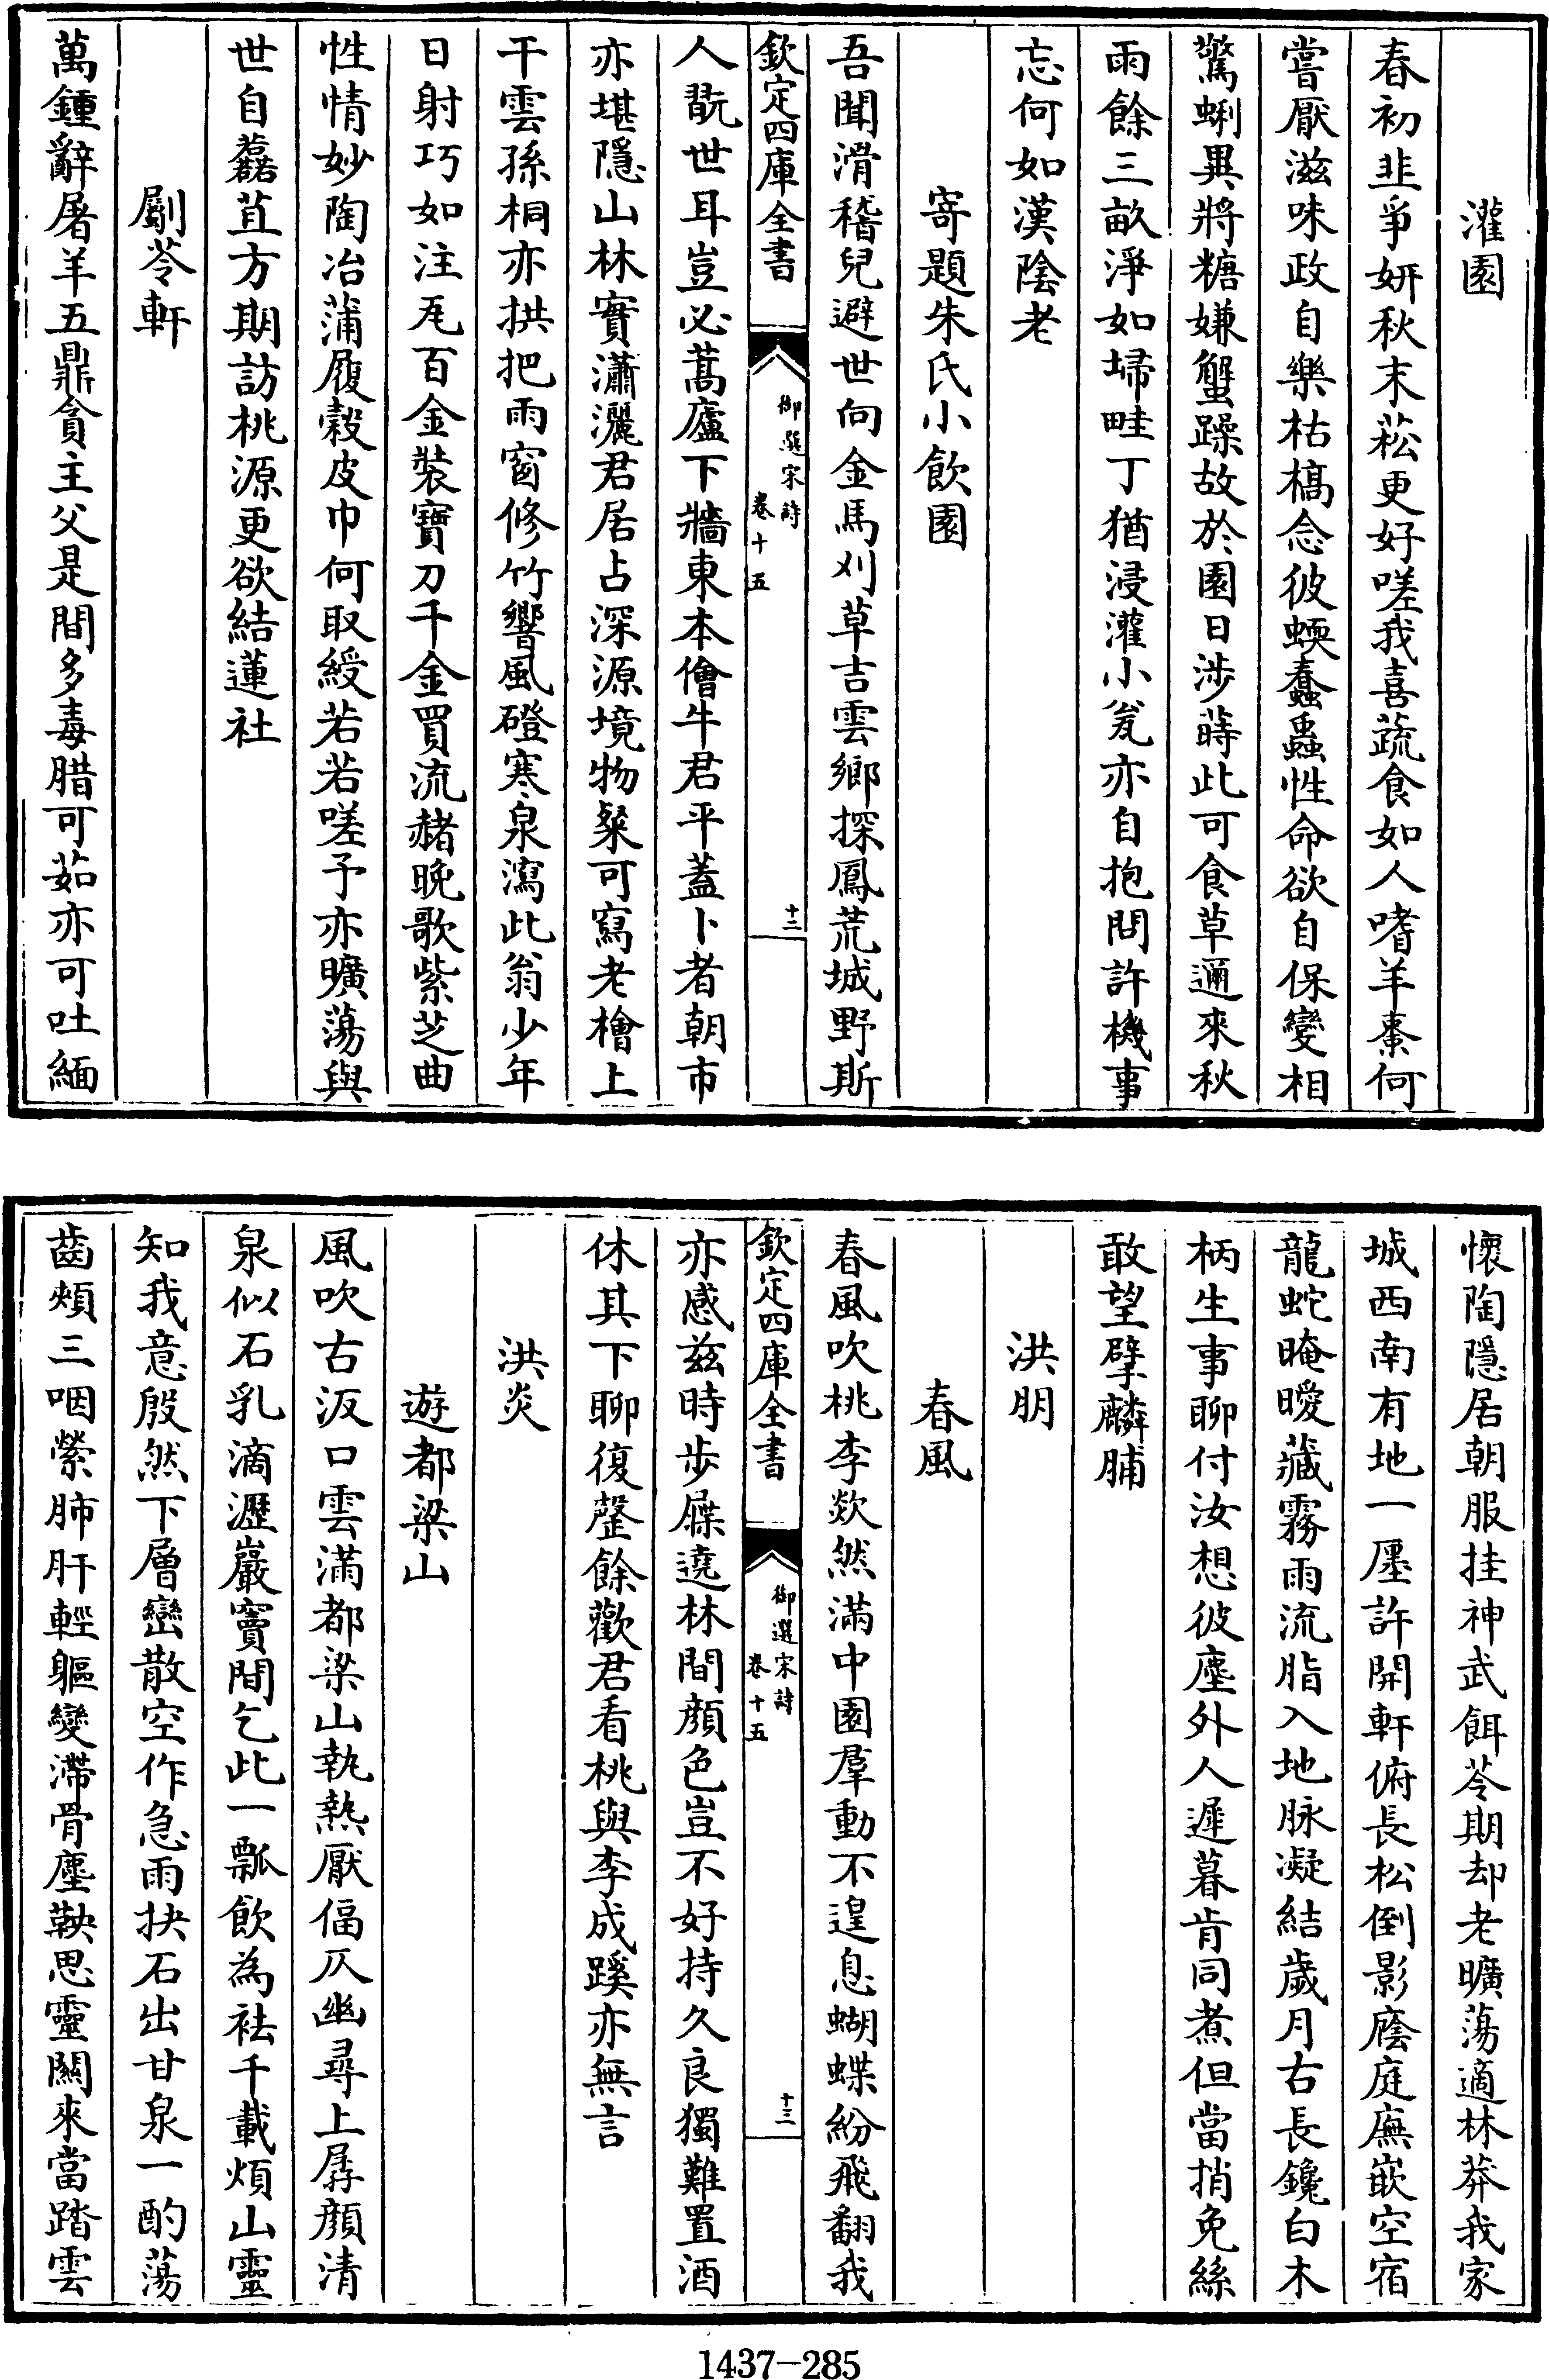 灌園
春初韭爭妍秋末菘更好嗟我喜蔬食如人嗜羊棗何
嘗厭滋味政自樂枯槁念彼蝡蠢蟲性命欲自保變相
驚蜊異將糖嫌蟹躁故於園日涉蒔此可食草邇來秋
雨餘三畝淨如埽畦丁猶浸灌小瓮亦自抱問許機事
忘何如漢陰老
寄題朱氏小飲園
吾聞滑稽兒避世向金馬刈草吉雲鄉探鳳荒城野斯
欽定四庫全書
御選宋詩
卷十五
十二
人翫世耳豈必蒿廬下牆東本儈牛君平蓋卜者朝市
亦堪隱山林實瀟灑君居占深源境物粲可寫老檜上
干雲孫桐亦拱把雨窗修竹響風磴寒泉瀉此翁少年
日射巧如注瓦百金裝寶刀千金買流赭晚歌紫芝曲
性情妙陶冶蒲履榖皮巾何取綬若若嗟予亦曠蕩與
世自藞苴方期訪桃源更欲結蓮社
劚苓軒
萬鍾辭屠羊五鼎貪主父是間多毒腊可茹亦可吐緬
懷陶隱居朝服挂神武餌苓期却老曠蕩適林莽我家
城西南有地一廛許開軒俯長松倒影廕庭廡嵌空宿
龍蛇晻曖藏霧雨流脂入地脉凝結歲月右長鑱白木
柄生事聊付汝想彼塵外人遲暮肯同煮但當捎免絲
敢望擘麟脯
洪朋
春風
春風吹桃李欻然滿中園羣動不遑息蝴蝶紛飛翻我
欽定四庫全書
御選宋詩
卷十五
十三
亦感茲時步屧遶林間顏色豈不好持久良獨難置酒
休其下聊復罄餘歡君看桃與李成蹊亦無言
洪炎
遊都梁山
風吹古汳口雲滿都梁山執熱厭偪仄幽尋上孱顏清
泉似石乳滴瀝巖竇間乞此一瓢飲為祛千載煩山靈
知我意殷然下層巒散空作急雨抉石出甘泉一酌蕩
齒頰三咽縈肺肝輕軀變滯骨塵鞅思靈關來當踏雲
1437-285